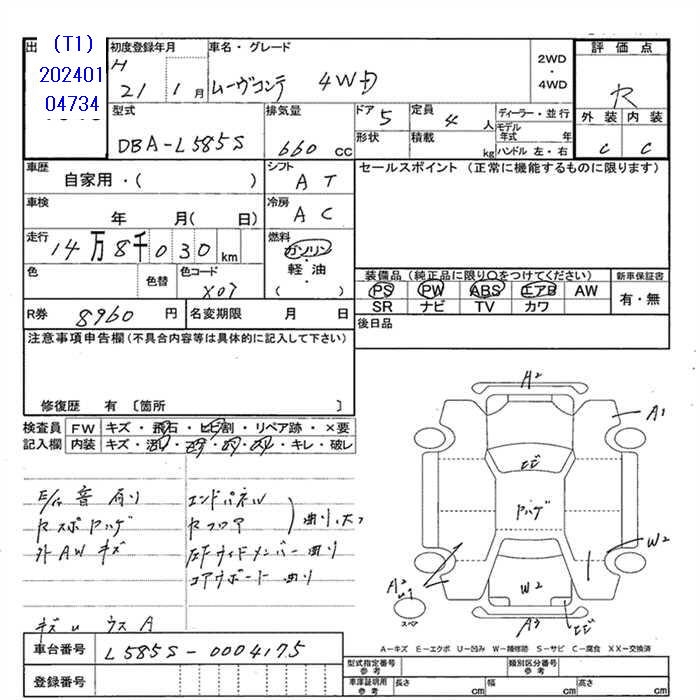 出
(T1)
202401
04734
初度登録年月
H
21 1月
車名・グレード
ムーヴコンテ 4WD
2WD
・
4WD
評価点
R
外装 内装
C C
型式
DBA-L585S
排気量
660 CC
ドア 5
形状
定員 4 人
積載 kg
ディーラー・並行
モデル年式 年
ハンドル 左・右
車歴
自家用・( )
シフト
AT
セールスポイント (正常に機能するものに限ります)
車検
年 月( 日)
冷房
AC
走行
14万8千030km
燃料
ガソリン
・
軽油
・
( )
色
色替
色コード
X07
装備品(純正品に限り○をつけてください)
新車保証書
PS PW ABS エアB AW
SR ナビ TV カワ
有・無
R券 8960 円
名変期限 月 日
後日品
注意事項申告欄(不具合内容等は具体的に記入して下さい)
修復歴 有 〔箇所 〕
検査員
記入欄
FW キズ・飛石・ヒビ割・リペア跡・×要
内装 キズ・キレ・破レ
E/G音有り
外AWキズ
エンドパネル
Rフロア
曲り
コアサポート曲り
キズu ウスA
A2
A1
ヒビ
ハゲ
W2
A2
W2
A3
ヒビ
スペア
A-キズ E-エクボ U-凹み W-補修跡 S-サビ C-腐食 XX-交換済
車台番号 L585S-0004175
登録番号
型式指定番号
参考
類別区分番号
参考
車庫証明用
参考
長さ cm 幅 cm 高さ cm